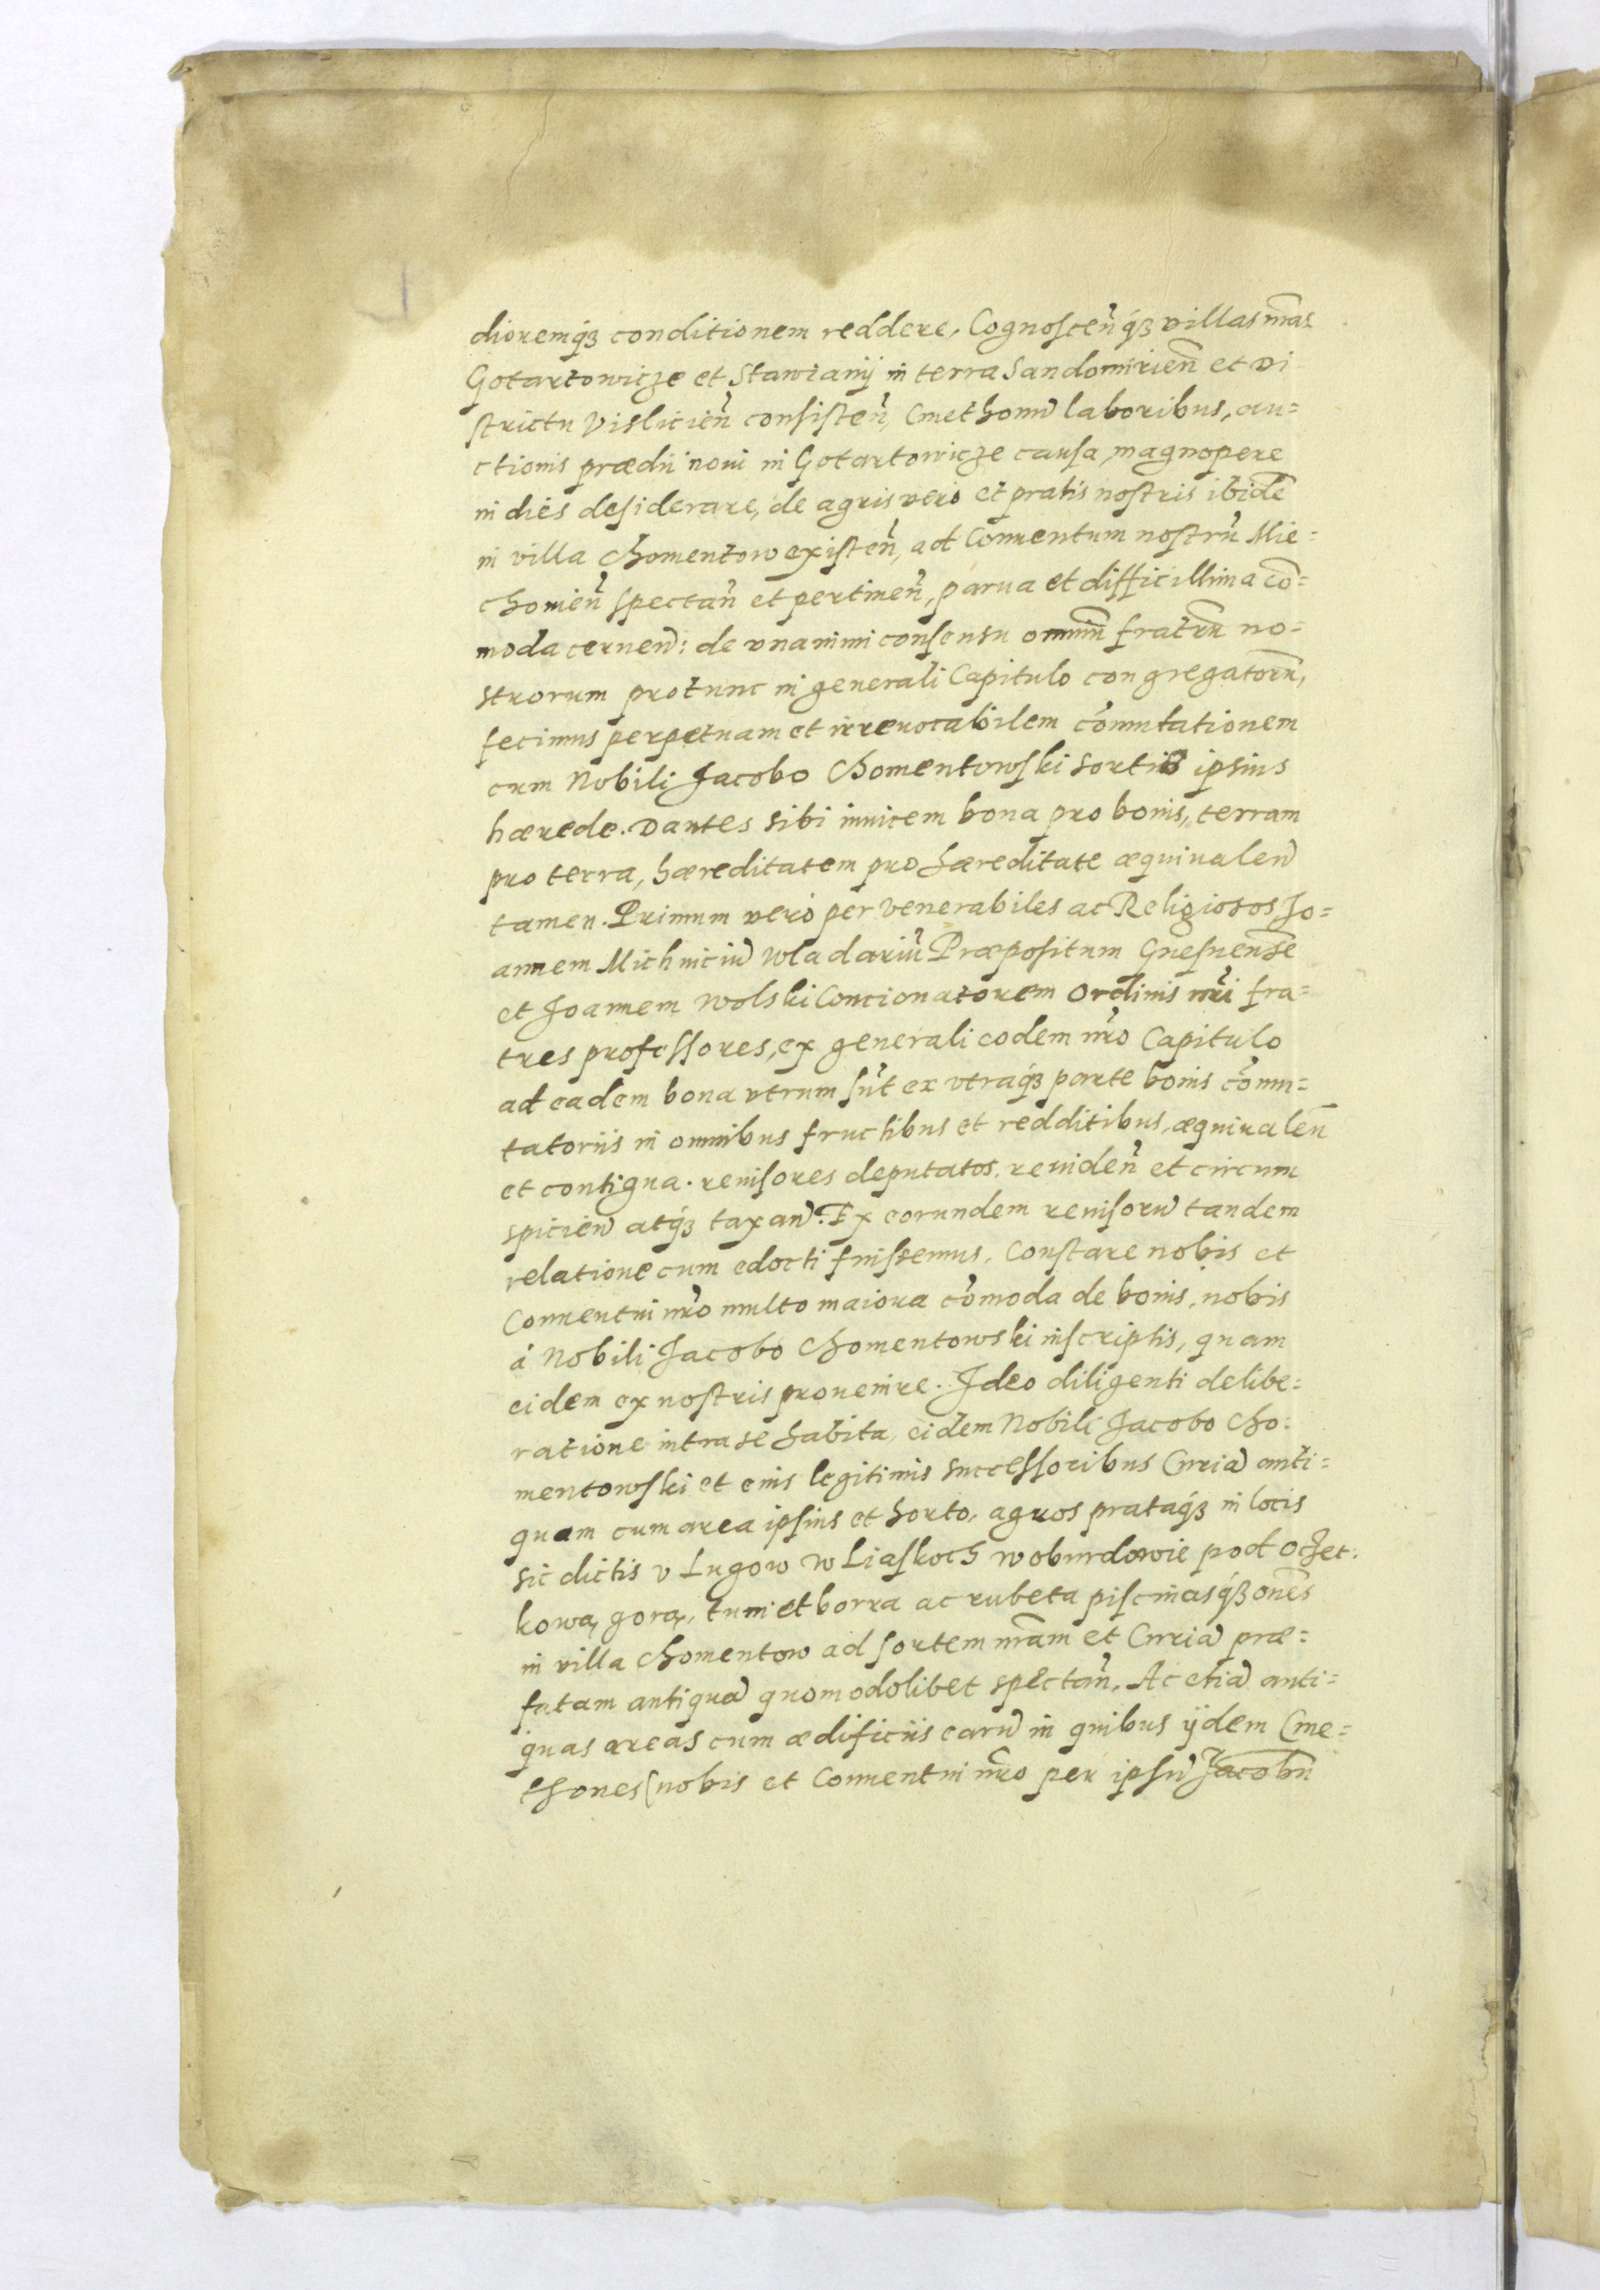 dioremq́ꝫ conditionem reddere. Cognoscen̄q́ꝫ villas nr̄as
Gotartowicze et Stawianij in terra Sandomirien̄ et Di
strictu Vislicien̄ consisten̄, Cmethonū laboribus, au=
ctionis prædii noui in Gotartowicze causa, magnopere
in dies desiderare, de agris vero et pratis nostris ibidē
in villa Chomentow existen̄, ad Conuentum nostrū Mie=
chouien̄ spectan̄ et pertinen̄, parua et difficillima cō=
moda cernen̄: de vnanimi consensu omniū fratrū no=
strorum protunc in generali Capitulo congregatorū,
fecimus perpetuam et irreuocabilem cōmutationem
cum Nobili Jacobo Chomentowski sortis ipsius
hærede. Dantes sibi inuicem bona pro bonis, terram
pro terra, hæreditatem pro hæreditate æquiualen̄
tamen. Primum vero per Venerabiles ac Religiosos Jo=
annem Michniciū Wladariū Præpositum Gnesnensē
et Joannem Wolski Concionatorem Ordinis nr̄i fra=
tres professores, ex generali eodem nr̄o Capitulo
ad eadem bona vtrum sūt ex vtraq́ꝫ parte bonis cōmu=
tatoriis in omnibus fructibus et redditibus, æquiualen̄
et contigua. reuisores deputatos, reuiden̄ et circum
spicien̄ atq́ꝫ taxan̄. Ex eorundem reuisorū tandem
relatione cum edocti fuissemus. Constare nobis et
Conuentui nr̄o multo maiora cōmoda de bonis, nobis
á Nobili Jacobo Chomentowski inscriptis, quam
eidem ex nostris prouenire. Ideo diligenti delibe=
ratione intra se habita, eidem Nobili Jacobo Cho=
mentowski et eius legitimis successoribus Curiā anti=
quam cum area ipsius et horto, agros prataq́ꝫ in locis
sic dictis v Lugow w Liaskoch w oburdowie pod Oczet=
kową gorą, tum et borra ac rubeta piscinasq́ꝫ om̄es
in villa Chomentow ad sortem nr̄am et Curiā præ=
fatam antiquā quomodolibet spectan̄. Ac etiā anti=
quas areas cum ædificiis earū in quibus ijdem Cme=
thones (nobis et Conuentui nr̄o per ipsū Jacobū